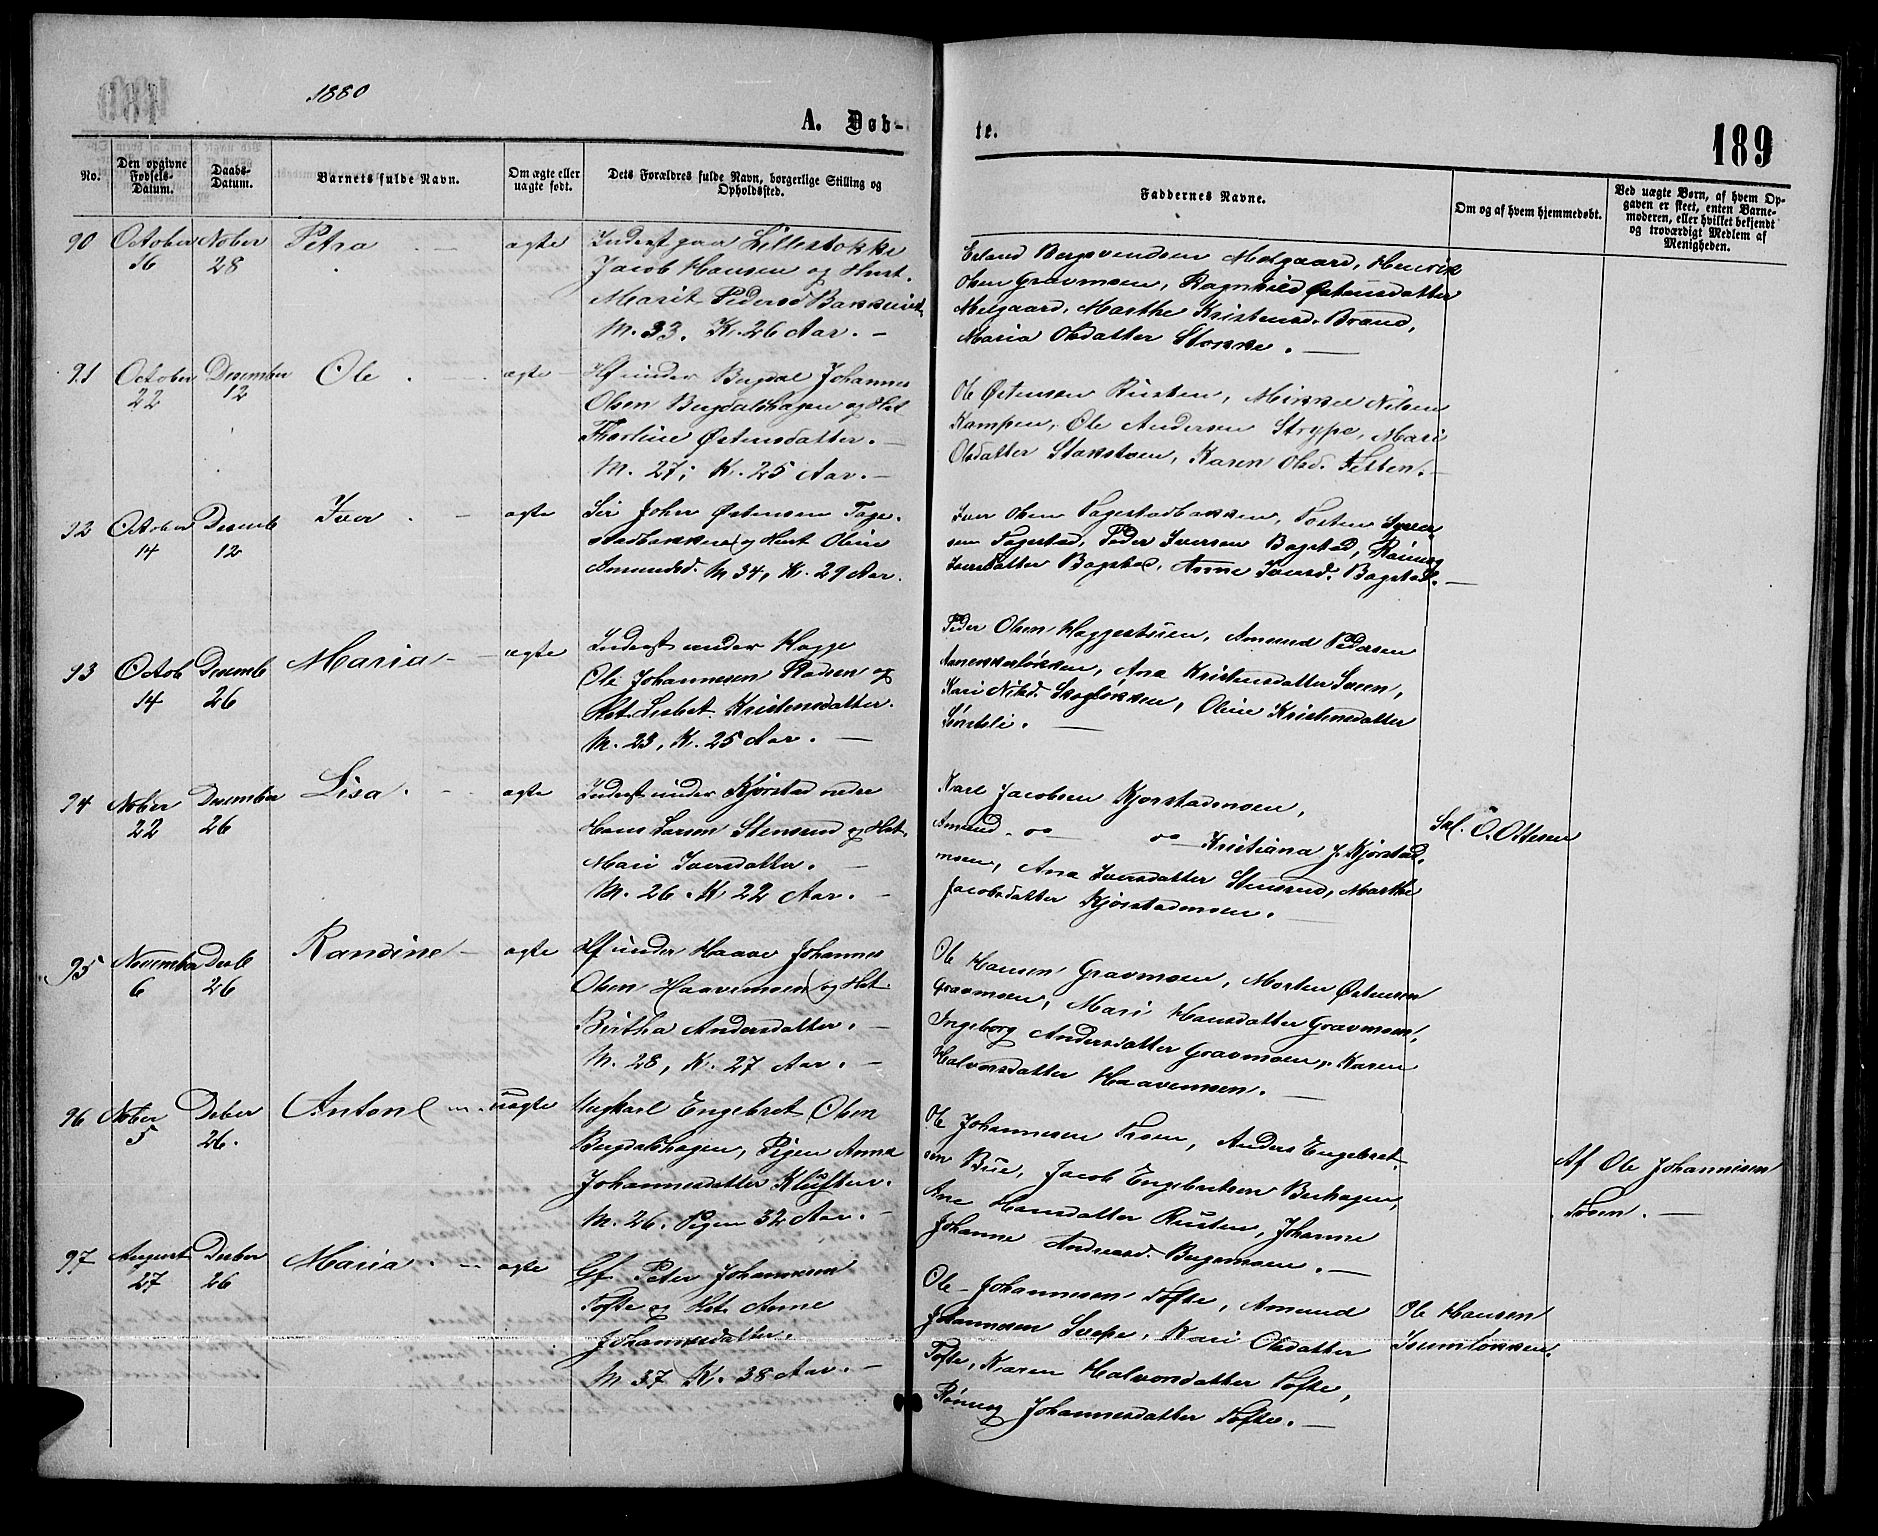 1880
A. Døb-
te.
189
No.
Den opgivne Fødsels-Datum.
Daabs-Datum.
Barnets fulde Navn.
Om ægte eller uægte født.
Dets Forældres fulde Navn, borgerlige Stilling og Opholdssted.
Faddernes Navne.
Om og af hvem hjemmedøbt.
Ved uægte Børn, af hvem Op-
gaven er skeet, enten Barne-
moderen, eller hvilket bekjendt
og troværdigt Medlem af
Menigheden.
90 October 16 Nober 28 Petra - ægte Inderst paa Lillestokke
Jacob Hansen og Hust.
Marit Pedersd
M. 33. K. 26 Aar. -
Erland Bergsvendsen Melgaard, Henrik
Olsen Gravmoen, Ragnhild Østensdatter
Melgaard, Marthe Kristensd. Brand,
Maria Olsdatter Stokke. -
91 October 22 Desember 12 Ole - ægte Hf under Bugdal Johannes
Olsen Bugdalshagen og Hst
Thorline Østensdatter. -
M. 27; K. 25 Aar. -
Ole Østensen Rusten, Mikkel Nilsen
Kampen, Ole Andersen Strype, Mari
Olsdatter Stokstuen, Karen Olsd. -
92 October 14 Desemb 12 Iver - ægte Sir John Østensen Fage-
stadbakken og Hust Oline
Amundsd. M 34, K. 29 Aar.
Iver Olsen Fagestadbakken, Iver-
sen Fagestad, Peder Iversen Bagstad, Rønnog
Iversdatter Bagstad, Anne Iversd. Bagstad. -
93 Octob 14 Desemb 26 Maria - ægte Inderst under Hagge
Ole Johannesen og
Hst Lisbet Kristensdatter.
M. 23, K. 25 Aar. -
Peder Olsen Haggestuen, Amund Pedersen
Ana Kristensdatter
Kari Nilsd. Skogløkken, Oline Kristensdatter
94 Nober 22 Desember 26 Lisa - ægte Inderst under Kjørstad nedre
Hans Larsen Stensrud og Hst.
Mari Iversdatter. -
M. 26. K 22 Aar. -
Karl Jacobsen Kjorstadmoen,
Amund -"- -"- Kristiana J. Kjørstad-
moen, Ana Iversdatter Stensrud, Marthe
Jacobsdatter Kjørstadmoen. -
Skl. O. Ottesen
95 November 6 Desb 26 Randine - ægte Hf under Haave Johannes
Olsen Haavemoen og Hst.
Birtha Andersdatter. -
M. 28, K. 27 Aar. -
Ole Hansen Gravmoen, Morten Østensen
Gravmoen, Mari Hansdatter Gravmoen,
Ingeborg Andersdatter Gravmoen, Karen
Halvorsdatter Haavemoen. -
96 Nober 5 Deber 26. Anton - uægte Ungkarl Engebret Olsen
Bugdalshagen, Pigen Anna
Johannesdatter Kluften.
M. 26. Pigen 32 Aar. -
Ole Johannesen Anders Engebret-
sen Bue, Jacob Engebretsen
Ane Hansdatter Rusten, Johanne
Johanne Andreasd. -
Af Ole Johannesen
97 August 27 Desber 26 Maria - ægte Gf. Peter Johannesen
Tofte og Hst. Anne
Johannesdatter.
M 37 K. 38 Aar. -
Ole Johannesen Tofte, Amund
Johannesen Kari Olsdatter
Tofte, Karen Halvorsdatter Tofte,
Rønnog Johannesdatter Tofte. -
Ole Hansen
Isumløkken.